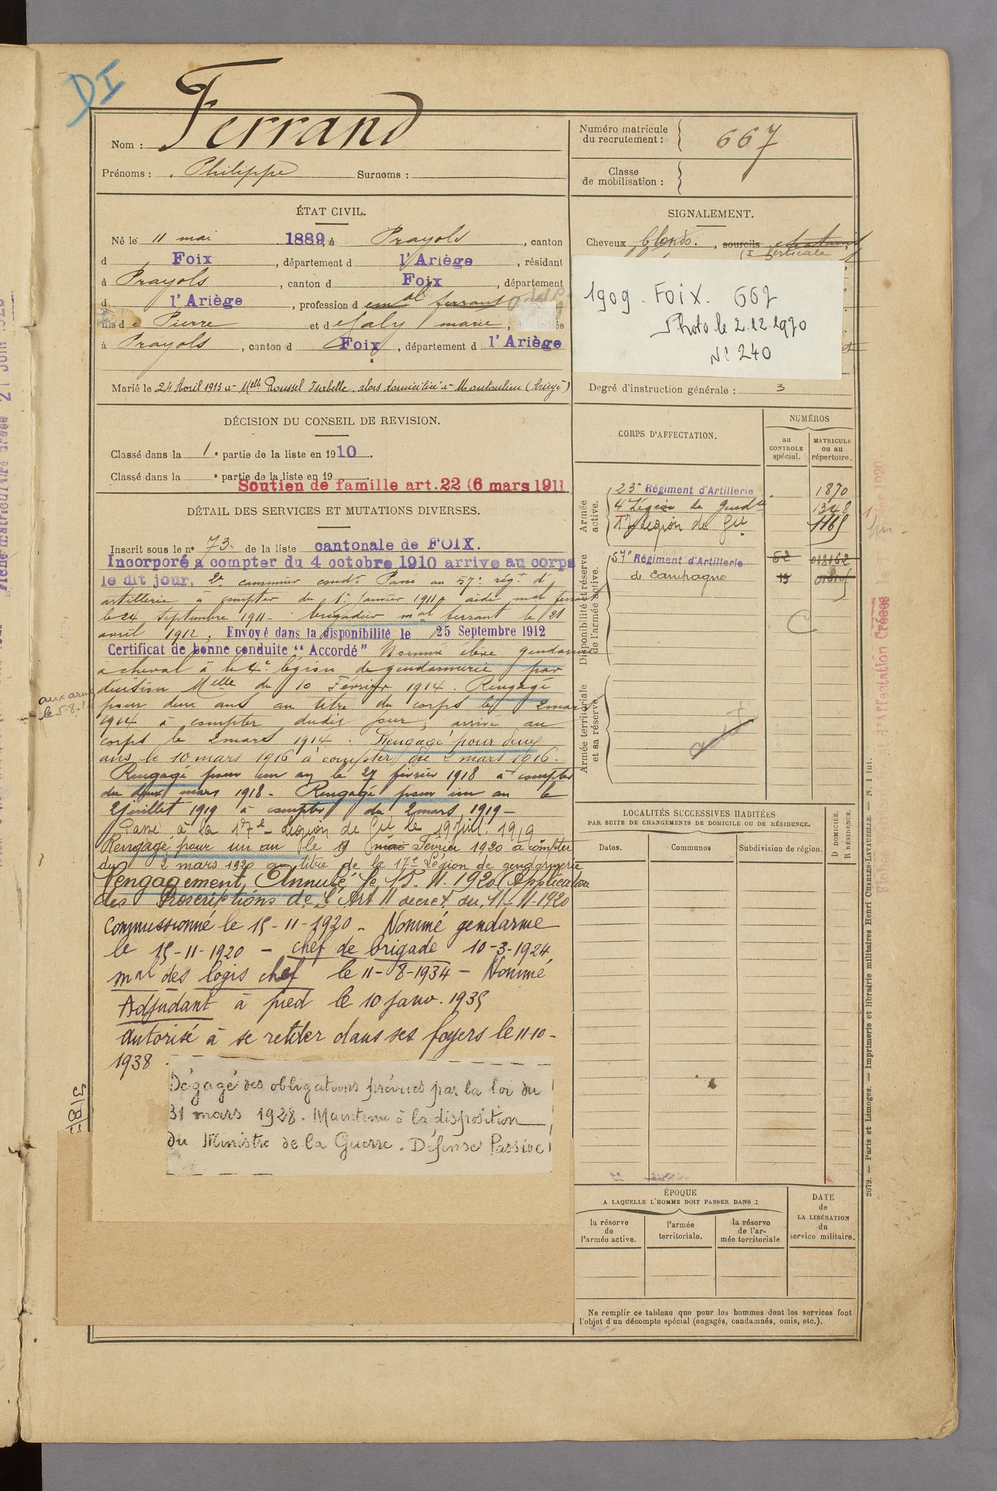 DI
Nom : Ferrand
Prénoms : Philippe Surnoms :
Numéro matricule du recrutement : 667
Classe de mobilisation :
ÉTAT CIVIL.
Né le 11 mai 1889 à Prayols, canton
d Foix, département d l'Ariège, résidant
à Prayols, canton d Foix, département
d l'Ariège, profession d
fils d Pierre et de Jaly marie,
à Prayols, canton d Foix, département d l'Ariège
Marié le 24 Avril 1913 à Melle Roussel Isabelle, alors domiciliée à Montoulieu (Ariège)
SIGNALEMENT.
Cheveux blonds, sourcils châtains
verticale
1909. Foix. 667
Photo le 2.12.1970
N° 240
Degré d'instruction générale : 3
DÉCISION DU CONSEIL DE REVISION.
Classé dans la 1e partie de la liste en 1910.
Classé dans la e partie de la liste en 19
Soutien de famille art. 22 (6 mars 1911
DÉTAIL DES SERVICES ET MUTATIONS DIVERSES.
Inscrit sous le n° 73 de la liste cantonale de FOIX.
Incorporé à compter du 4 octobre 1910 arrive au corps
le dit jour, 2e canonnier condr. Passé au 57e régt d'
artillerie à compter du 1er janvier 1911. aide mal ferrant
le 24 Septembre 1911. brigadier mal ferrant le 21
avril 1912. Envoyé dans la disponibilité le 25 Septembre 1912
Certificat de bonne conduite "Accordé" Nommé élève gendarme
à cheval à la légion de gendarmerie par
décision Melle du 10 Février 1914. Rengagé
pour deux ans au titre du corps le 2 mars
1914 à compter dudit jour, arrivé au
corps le 2 mars 1914. Rengagé pour deux
ans le 10 mars 1916 à compter du 2 mars 1916.
Rengagé pour un an le 27 février 1918 à compter
du deux mars 1918. Rengagé pour un an le
2 juillet 1919 à compter du 2 mars 1919 -
Passé à la 17e Légion de Gie le 19 Juill. 1919
Rengagé pour un an le 19 Février 1920 à compter
du 2 mars 1920 au titre de la 17e Légion de gendarmerie
Rengagement Annulé le 15.11.1920 (Application
des Prescriptions de l'Art 11 decret du 11-11-1920
Commissionné le 15-11-1920 - Nommé gendarme
le 15-11-1920 - chef de brigade 10-3-1924
mal des logis chef le 11-8-1934 - Nommé
Adjudant à pied le 10 janv. 1935
Autorisé à se retirer dans ses foyers le 11-10-
1938.
Dégagé des obligations prévues par la loi du
31 mars 1928. Maintenu à la disposition
du Ministre de la Guerre. Défense Passive
CORPS D'AFFECTATION.
NUMÉROS
au CONTROLE spécial.
MATRICULE ou au répertoire.
Armée active.
23e Régiment d'Artillerie 1870
Légion de Gend 1348
Légion de Gie
Disponibilité et réserve de l'armée active.
57e Régiment d'Artillerie
de campagne
C
Armée territoriale et sa réserve.
LOCALITÉS SUCCESSIVES HABITÉES
PAR SUITE DE CHANGEMENTS DE DOMICILE OU DE RÉSIDENCE.
Dates. Communes Subdivision de région. D DOMICILE. R RÉSIDENCE.
ÉPOQUE
A LAQUELLE L'HOMME DOIT PASSER DANS :
la réserve de l'armée active.
l'armée territoriale.
la réserve de l'armée territoriale
DATE de LA LIBÉRATION du service militaire.
Ne remplir ce tableau que pour les hommes dont les services font
l'objet d'un décompte spécial (engagés, condamnés, omis, etc.).
2679. — Paris et Limoges. — Imprimerie et librairie militaires Henri CHARLES-LAVAUZELLE. — N. 1 int.
d'Affectation Créées